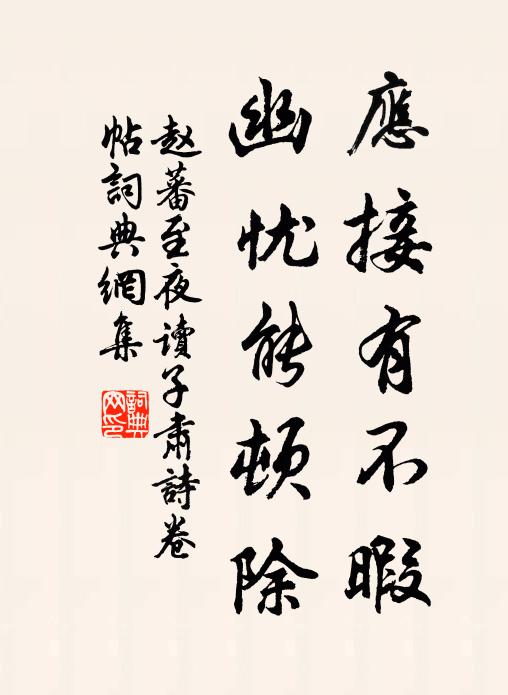 應接有不暇
幽忧能顿除
赵蕃至夜讀子肅詩卷
帖詞典網集
詞典网印